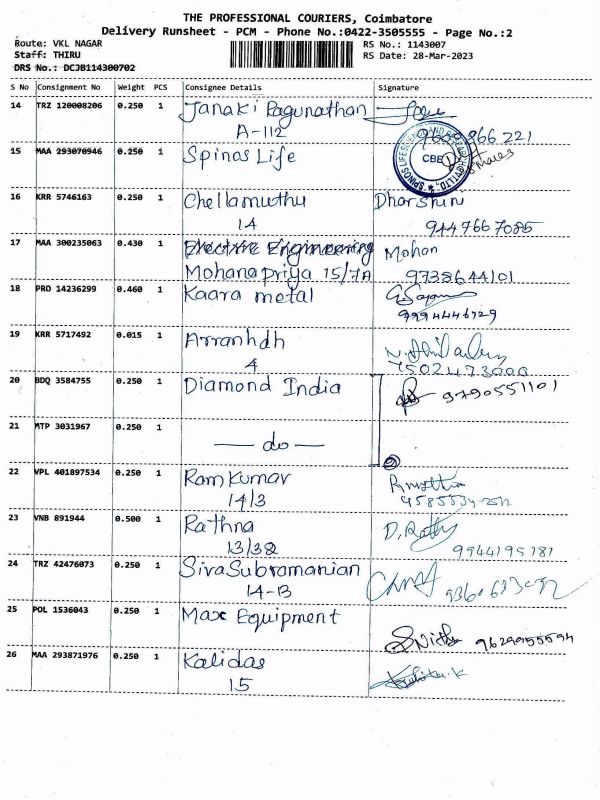 THE PROFESSIONAL COURIERS, Coimbatore
Delivery Runsheet - PCM - Phone No.:0422-3505555 - Page No.:2
Route: VKL NAGAR RS No.: 1143007
Staff: THIRU RS Date: 28-Mar-2023
DRS No.: DCJB114300702
S No Consignment No Weight PCS Consignee Details Signature
14 TRZ 120008206 0.250 1 Janaki Ragunathan
A-112
15 MAA 293070946 0.250 1 Spinos Life CBE
16 KRR 5746163 0.250 1 Chellamuthu Dharshini
14 9447667085
17 MAA 300235063 0.430 1 Electric Engineering Mohan
Mohanapriya 15/7A 9738644101
18 PRO 14236299 0.460 1 Kaara metal
9994446729
19 KRR 5717492 0.015 1 Arranhdh
4
20 BDQ 3584755 0.250 1 Diamond India 9790551101
21 MTP 3031967 0.250 1
— do —
22 VPL 401897534 0.250 1 Ram Kumar
14/3
23 VNB 891944 0.500 1 Rathna D. Rathy
13/38 9944195181
24 TRZ 42476073 0.250 1 SivaSubramanian
14-B
25 POL 1536043 0.250 1 Max Equipment
9629955594
26 MAA 293871976 0.250 1 Kalidas
15